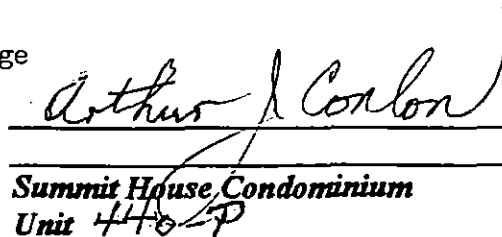 ge
Arthur J Conlon
Summit House Condominium
Unit 440-P